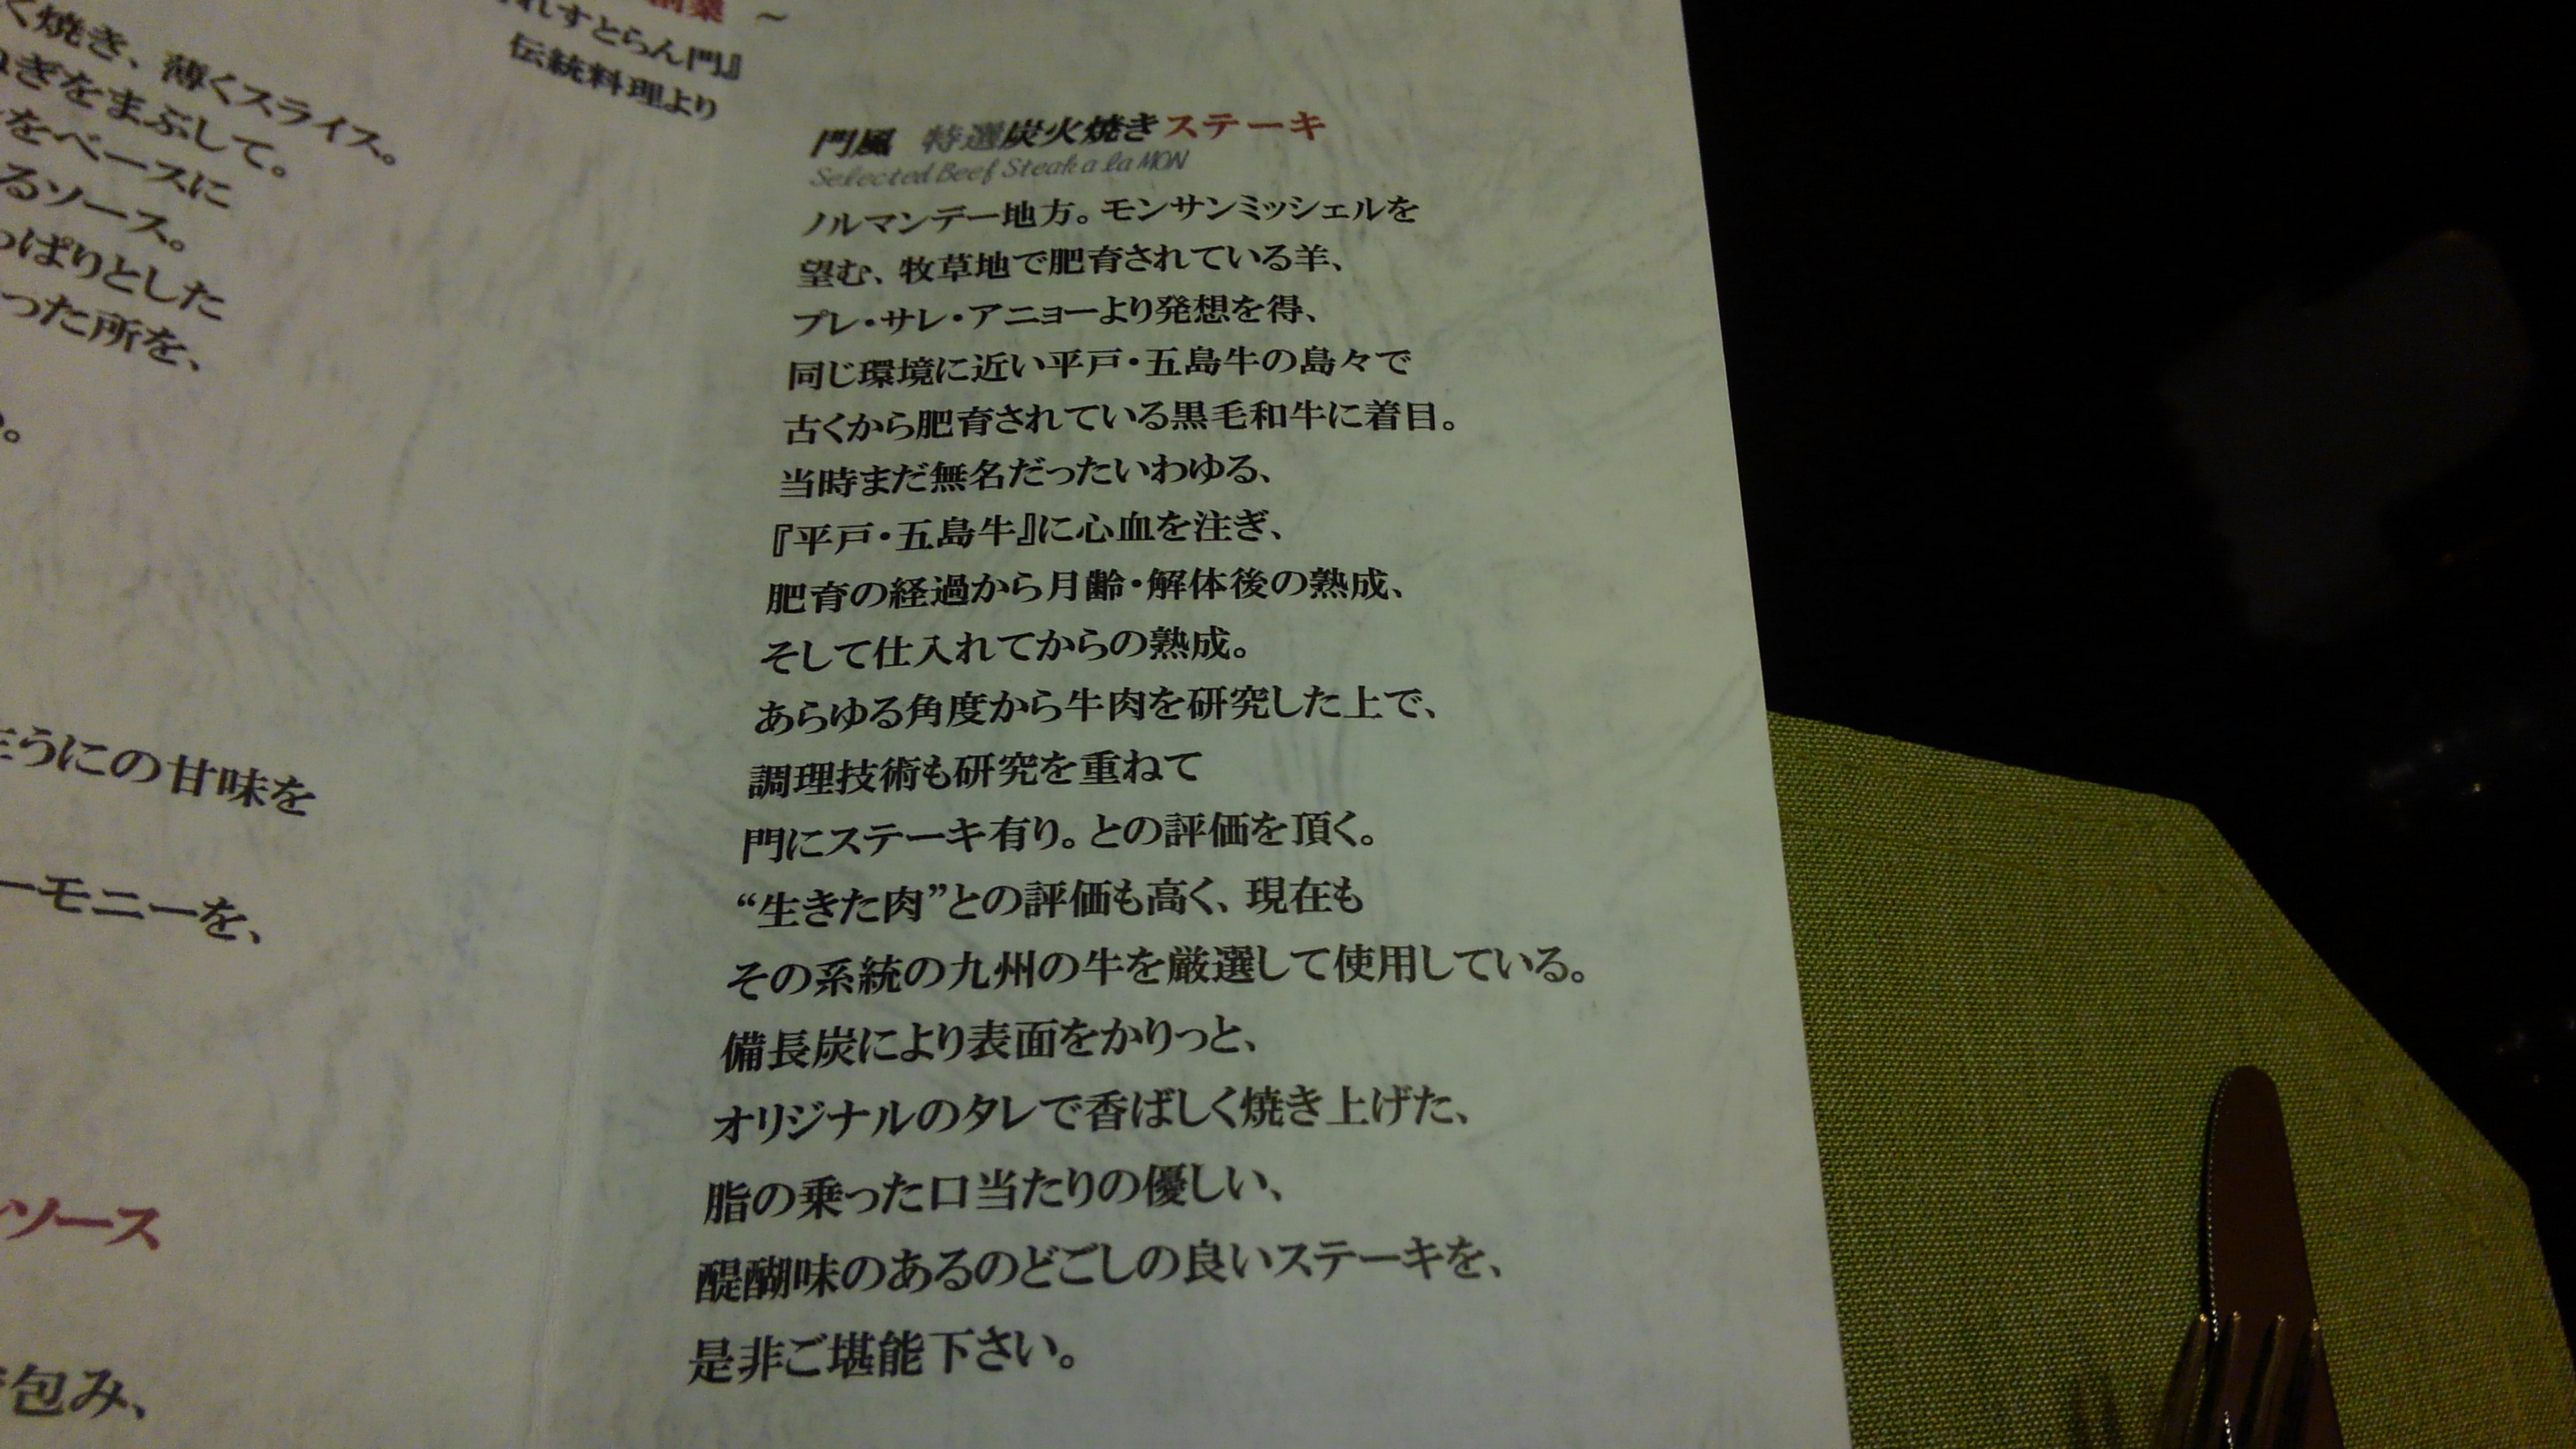 く焼き、薄くスライス。
ねぎをまぶして。
をベースに
るソース。
っぱりとした
った所を、
。
うにの甘味を
ーモニーを、
ソース
包み、
～
れすとらん門』
伝統料理より
門風 特選炭火焼きステーキ
Selected Beef Steak a la MON
ノルマンデー地方。モンサンミッシェルを
望む、牧草地で肥育されている羊、
プレ・サレ・アニョーより発想を得、
同じ環境に近い平戸・五島牛の島々で
古くから肥育されている黒毛和牛に着目。
当時まだ無名だったいわゆる、
『平戸・五島牛』に心血を注ぎ、
肥育の経過から月齢・解体後の熟成、
そして仕入れてからの熟成。
あらゆる角度から牛肉を研究した上で、
調理技術も研究を重ねて
門にステーキ有り。との評価を頂く。
“生きた肉”との評価も高く、現在も
その系統の九州の牛を厳選して使用している。
備長炭により表面をかりっと、
オリジナルのタレで香ばしく焼き上げた、
脂の乗った口当たりの優しい、
醍醐味のあるのどごしの良いステーキを、
是非ご堪能下さい。